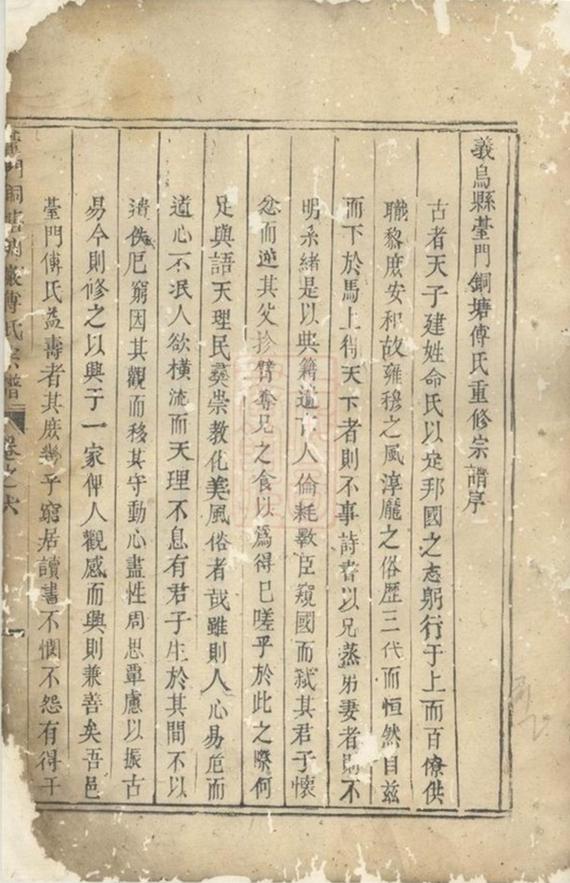 義烏縣臺門銅塘傅氏重修宗譜序
古者天子建姓命氏以定邦國之志躬行于上而百僚供
職黎庶安和故雍穆之風淳龐之俗歷三代而恒然自茲
而下於馬上得天下者則不事詩書以兄蒸弟妻者則不
明系緒是以典籍遺亡人倫耗斁臣窺國而弒其君子懷
忿而逆其父紾臂奪兄之食以爲得已嗟乎於此之際何
足與語天理民彝崇教化美風俗者哉雖則人心易危而
道心不泯人欲橫流而天理不息有君子生於其間不以
遺佚阨窮因其觀而移其守動心盡性周思覃慮以振古
易今則修之以興于一家俾人觀感而興則兼善矣吾邑
臺門傅氏益壽者其庶幾乎窮居讀書不憫不怨有得于
門銅塘 傅氏宗譜 卷之六 一